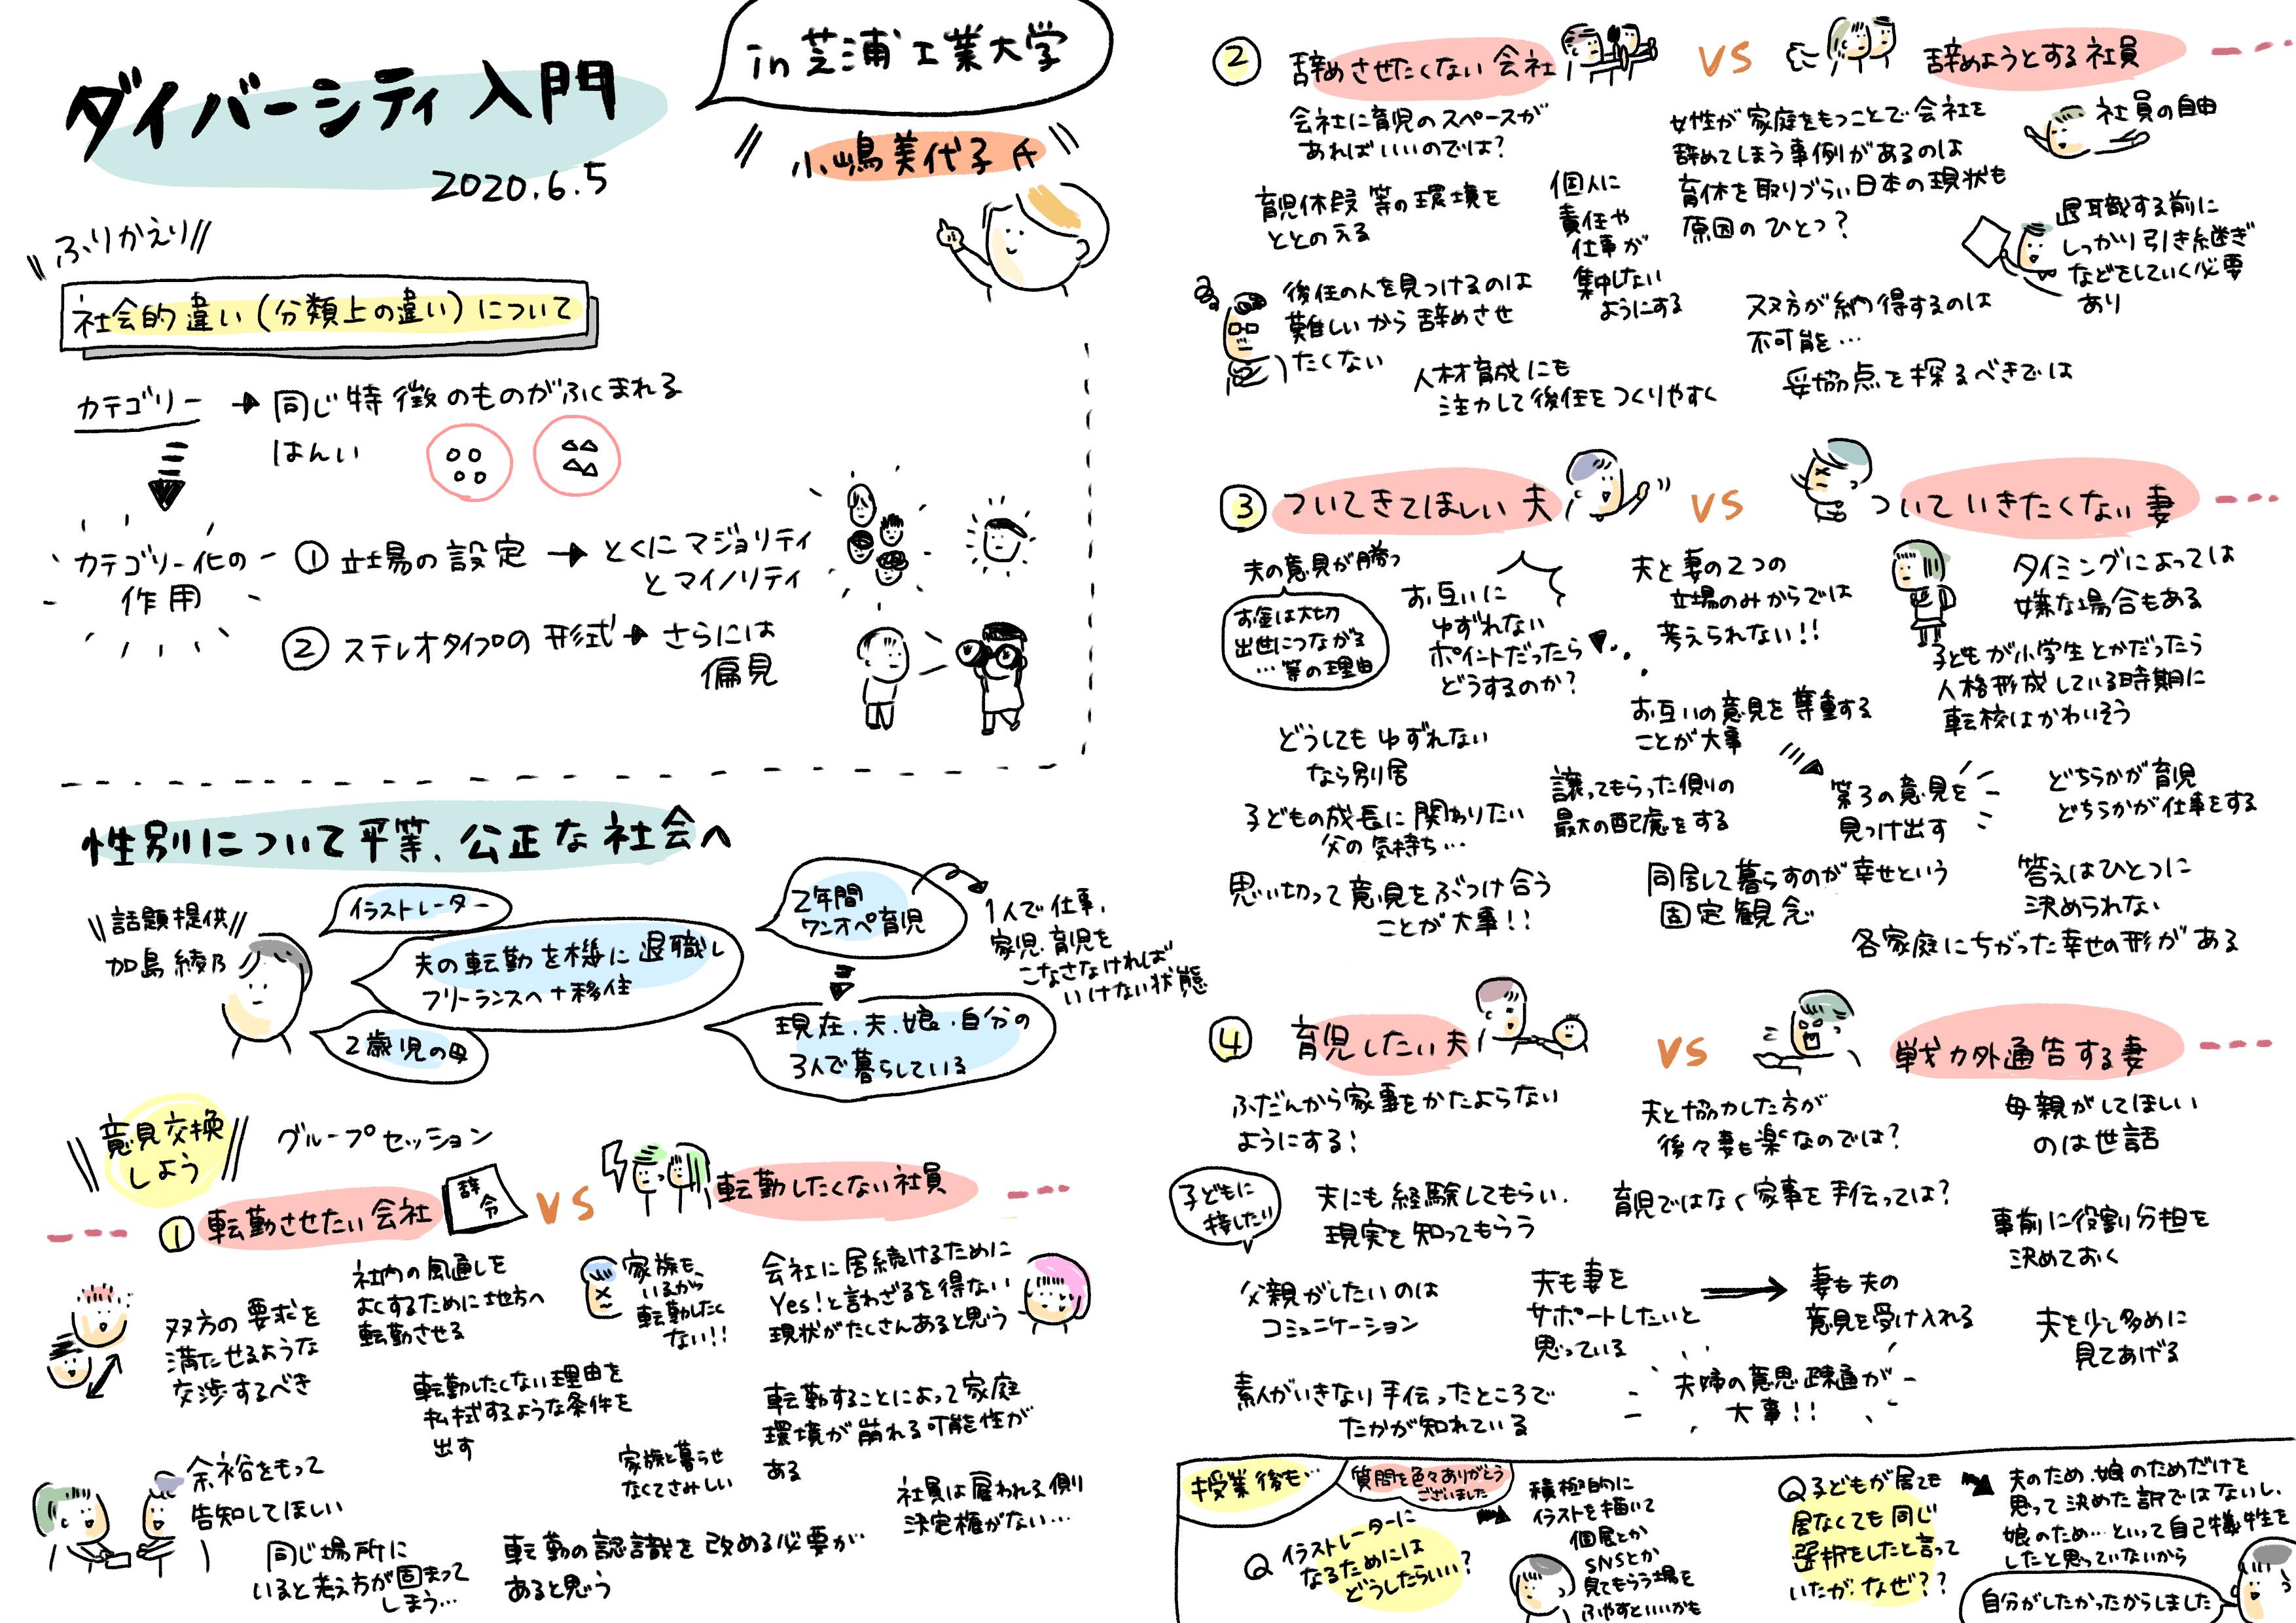 ダイバーシティ入門
2020.6.5
in 芝浦工業大学
小嶋美代子氏
ふりかえり
社会的違い(分類上の違い)について
カテゴリー → 同じ特徴のものがふくまれる
はんい
カテゴリー化の
作用
① 立場の設定 → とくにマジョリティ
とマイノリティ
② ステレオタイプの形式 → さらには
偏見
性別について平等、公正な社会へ
話題提供
加島 綾乃
イラストレーター
夫の転勤を機に退職し
フリーランスへ+移住
2歳児の母
2年間
ワンオペ育児
1人で仕事、
家児、育児を
こなさなければ
いけない状態
現在、夫、娘、自分の
3人で暮らしている
意見交換
しよう
グループセッション
① 転勤させたい会社
辞令
VS
転勤したくない社員
双方の要求を
満たせるような
交渉するべき
社内の風通しを
よくするために地方へ
転勤させる
家族も、
いるから
転勤したく
ない!!
会社に居続けるために
Yes!と言わざるを得ない
現状がたくさんあると思う
転勤したくない理由を
払拭するような条件を
出す
転勤することによって家庭
環境が崩れる可能性が
ある
家族と暮らせ
なくてさみしい
余裕をもって
告知してほしい
社員は雇われる側
決定権がない…
同じ場所に
いると考え方が固まって
しまう…
転勤の認識を改める必要が
あると思う
② 辞めさせたくない会社
VS
辞めようとする社員
会社に育児のスペースが
あればいいのでは?
育児休暇等の環境を
ととのえる
個人に
責任や
仕事が
集中しない
ようにする
後任の人を見つけるのは
難しいから辞めさせ
たくない
人材育成にも
注力して後任をつくりやすく
女性が家庭をもつことで会社を
辞めてしまう事例があるのは
育休を取りづらい日本の現状も
原因のひとつ?
社員の自由
退職する前に
しっかり引き継ぎ
などをしていく必要
あり
双方が納得するのは
不可能…
妥協点を探るべきでは
③ ついてきてほしい夫
VS
ついていきたくない妻
夫の意見が勝つ
お金は大切
出世につながる
…等の理由
お互いに
ゆずれない
ポイントだったら
どうするのか?
夫と妻の2つの
立場のみからでは
考えられない!!
タイミングによっては
嫌な場合もある
子どもが小学生とかだったら
人格形成している時期に
転校はかわいそう
どうしてもゆずれない
なら別居
お互いの意見を尊重する
ことが大事
子どもの成長に関わりたい
父の気持ち…
譲ってもらった側の
最大の配慮をする
第3の意見を
見つけ出す
どちらかが育児
どちらかが仕事をする
思い切って意見をぶつけ合う
ことが大事!!
同居して暮らすのが幸せという
固定観念
答えはひとつに
決められない
各家庭にちがった幸せの形がある
④ 育児したい夫
VS
戦力外通告する妻
ふだんから家事をかたよらない
ようにする!
夫と協力した方が
後々妻も楽なのでは?
母親がしてほしい
のは世話
子どもに
接したい
夫にも経験してもらい、
現実を知ってもらう
育児ではなく家事を手伝っては?
事前に役割分担を
決めておく
父親がしたいのは
コミュニケーション
夫も妻を
サポートしたいと
思っている
妻も夫の
意見を受け入れる
夫を少し多めに
見てあげる
素人がいきなり手伝ったところで
たかが知れている
夫婦の意思疎通が
大事!!
授業後も…
質問を色々ありがとう
ございました
Q イラストレーターに
なるためには
どうしたらいい?
積極的に
イラストを描いて
個展とか
SNSとか
見てもらう場を
ふやすといいかも
Q 子どもが居ても
居なくても同じ
選択をしたと言って
いたが、なぜ??
夫のため、娘のためだけを
思って決めた訳ではないし、
娘のため…といって自己犠牲を
したと思っていないから
自分がしたかったからしました